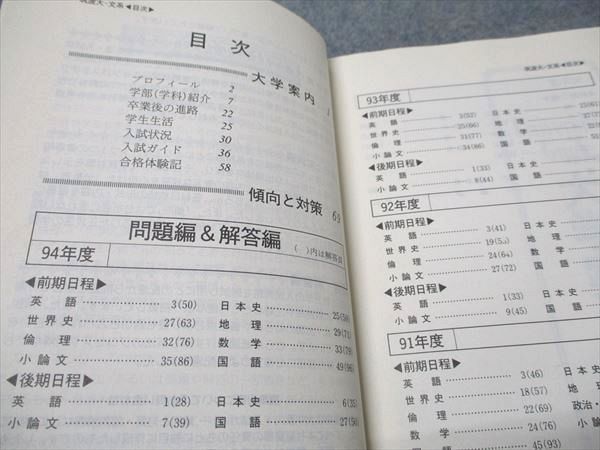 筑波大-文系◀目次▶
目 次
大学案内 1
プロフィール 2
学部(学科)紹介 7
卒業後の進路 22
学生生活 25
入試状況 30
入試ガイド 36
合格体験記 58
傾向と対策 69
問題編&解答編
94年度
( )内は解答頁
◀前期日程▶
英 語 ……… 3(50) 日本史 ……… 25(
世界史 ……… 27(63) 地 理 ……… 29(71)
倫 理 ……… 32(76) 数 学 ……… 33(79)
小論文 ……… 35(86) 国 語 ……… 49(96)
◀後期日程▶
英 語 ……… 1(28) 日本史 ……… 6(35)
小論文 ……… 7(39) 国 語 ……… 27(50)
筑波大-文系◀目次▶
93年度
◀前期日程▶
英 語 ……… 3(52) 日本史 ……… 25(61)
世界史 ……… 25(66) 地 理 ………
倫 理 ……… 31(77) 数 学 ………
小論文 ……… 34(86) 国 語 ………
◀後期日程▶
英 語 ……… 1(33) 日本史 ………
小論文 ……… 8(44) 国 語 ………
92年度
◀前期日程▶
英 語 ……… 3(41) 日本史
世界史 ……… 19(55) 地 理
倫 理 ……… 24(64) 数 学
小論文 ……… 27(72) 国 語
◀後期日程▶
英 語 ……… 1(33) 日本史
小論文 ……… 9(45) 国 語
91年度
◀前期日程▶
英 語 ……… 3(46) 日本
世界史 ……… 18(57) 地
倫 理 ……… 22(69) 政治・
数 学 ……… 24(76) 小
国 語 ……… 45(93)